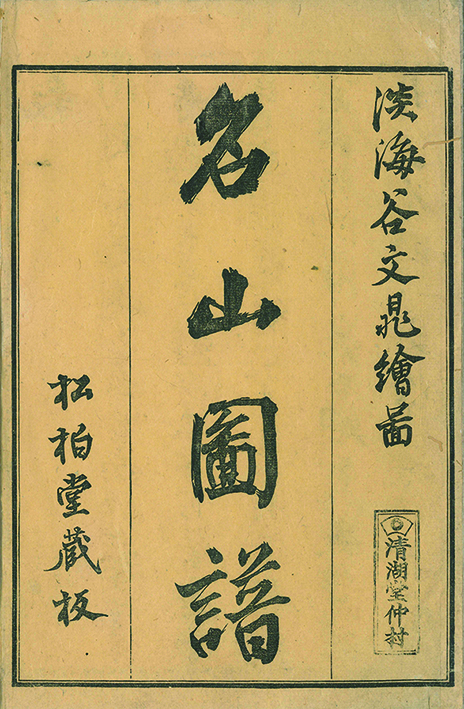 淡海谷文晁繪啚
清湖堂仲村
名山圖譜
松柏堂蔵板